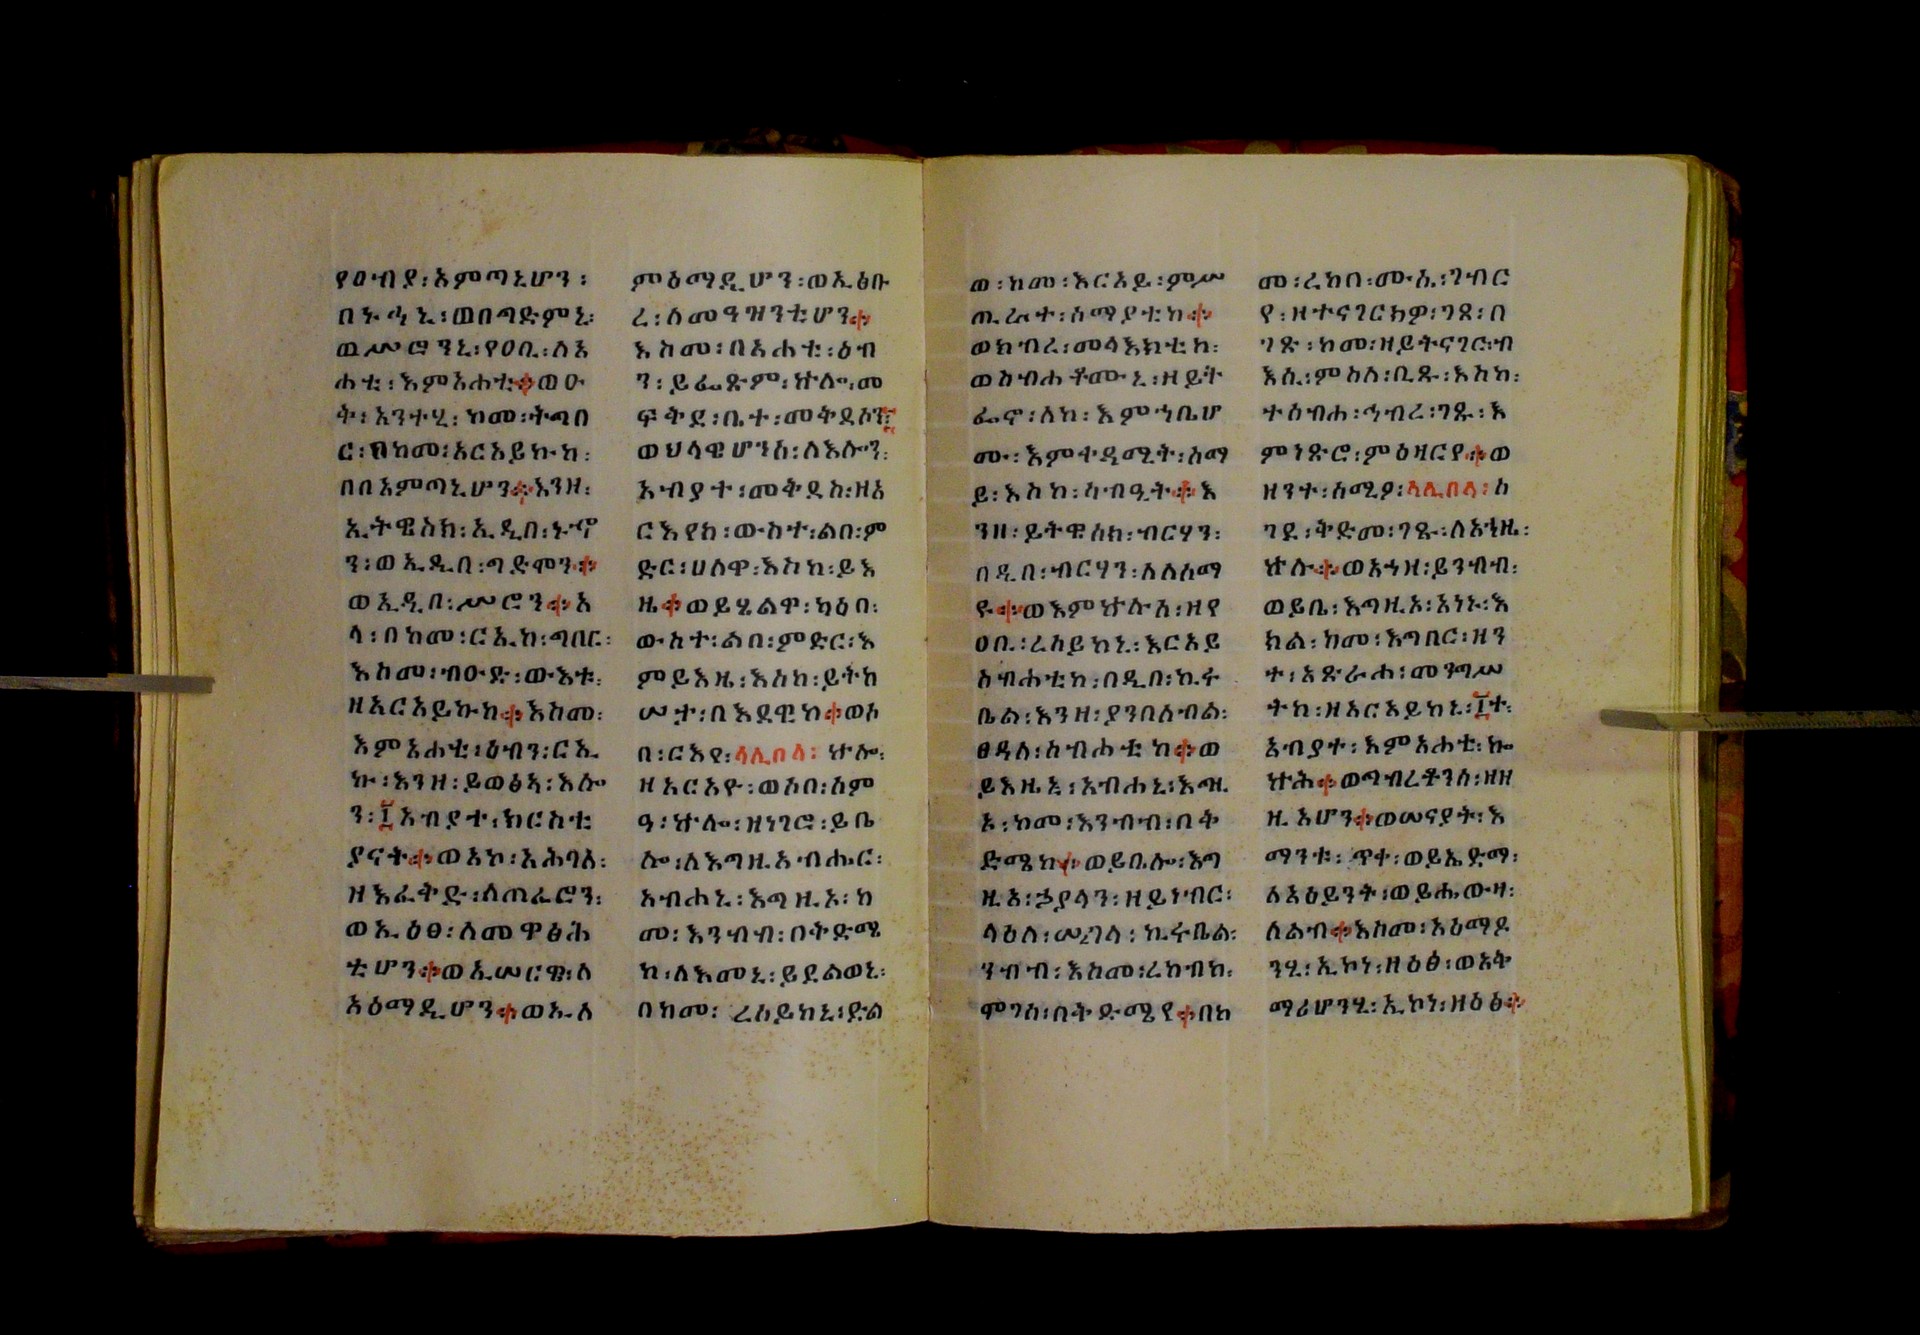 የዐብያ፡አምጣኒሆን፡
በኑኃኒ፡ወበጣድምኒ፡
ዉሦሮንኒ፡የዐቢ፡ለአ
ሐቲ፡እምአሐቲ።ወዑ
ት፡አንተሂ፡ከመ፡ትጣበ
ር፡በከመ፡አርአይኩከ፡
በበአምጣኒሆን።እንዘ፡
ኢትዌስክ፡ኢዲበ፡ኑኆ
ን፡ወኢዲበ፡ግድሞን።
ወኢዲበ፡ሦሮን።አ
ላ፡በከመ፡ርኢከ፡ግበር፡
እስመ፡ብዑድ፡ውእቱ፡
ዘአርአይኩከ።እስመ፡
እምአሐቲ፡ዕብን፡ርኢ
ኩ፡እንዘ፡ይወፅኣ፡እሎ
ን፡፲አብያተ፡ክርስቲ
ያናት።ወአኮ፡አሕባለ፡
ዘእፈትድ፡ለጠፈሮን፡
ወኢዕፀ፡ለመዋፅሕ
ቲሆን።ወኢሠርዌ፡ለ
አዕማዲሆን።ወኢለ
ምዕማዲሆን፡ወኢፅቡ
ረ፡ለመዓዝንቲሆን።
እስመ፡በአሐቲ፡ዕብ
ን፡ይፌጽም፡ኵሎ፡መ
ፍቅደ፡ቤተ፡መቅደስን፡
ወህላዌሆንሰ፡ለእሎን፡
አብያተ፡መቅደስ፡ዘአ
ርእየከ፡ውስተ፡ልበ፡ም
ድር፡ሀለዋ፡እስከ፡ይእ
ዜ።ወይሄልዋ፡ካዕበ፡
ውስተ፡ልበ፡ምድር፡እ
ምይእዜ፡እስከ፡ይትከ
ሠታ፡በእደዊከ።ወሶ
በ፡ርእየ፡ላሊበላ፡ኵሎ፡
ዘአርአዮ፡ወሶበ፡ሰም
ዓ፡ኵሎ፡ዘነገሮ፡ይቤ
ሎ፡ለእግዚአብሔር፡
አብሐኒ፡እግዚኦ፡ከ
መ፡እንብብ፡በቅድሜ
ከ፡ለእመኒ፡ይደልወኒ፡
በከመ፡ረሰይከኒ፡ድል
ወ፡ከመ፡እርአይ፡ምሥ
ጢራተ፡ሰማያቲከ።
ወክብረ፡መላእክቲከ፡
ወስብሐቶሙኒ፡ዘይት
ፌኖ፡ለከ፡እምኀቤሆ
ሙ፡እምተዳሚት፡ሰማ
ይ፡እስከ፡ሳብዒት።እ
ንዘ፡ይትዌሰክ፡ብርሃን፡
በዲበ፡ብርሃን፡ለለሰማ
ዩ።ወእምኵሉሰ፡ዘየ
ዐቢ፡ረሰይከኒ፡እርአይ
ስብሐቲከ፡በዲበ፡ኪሩ
ቤል፡እንዘ፡ያንበሰብል፡
ፀዳለ፡ስብሐቲከ።ወ
ይእዜኒ፡አብሐኒ፡እግዚ
ኦ፡ከመ፡እንብብ፡በቅ
ድሜከ።ወይቤሎ፡እግ
ዚአ፡ኃያላን፡ዘይነብር፡
ላዕለ፡ሠረገላ፡ኪሩቤል፡
ንብብ፡እስመ፡ረከብከ፡
ሞገሰ፡በቅድሜየ።በከ
መ፡ረከበ፡ሙሴ፡ገብር
የ፡ዘተናገርክዎ፡ገጸ፡በ
ገጽ፡ከመ፡ዘይትናገር፡ብ
እሲ፡ምስለ፡ቢጹ፡እስከ፡
ተሰብሐ፡ኅብረ፡ገጹ፡እ
ምነጽሮ፡ምዕዛርየ።ወ
ዘንተ፡ሰሚዖ፡ላሊበላ፡ሰ
ገደ፡ቅድመ፡ገጹ፡ለአኀዜ፡
ኵሉ።ወአኀዘ፡ይንብብ፡
ወይቤ፡እግዚኦ፡አነኑ፡እ
ክል፡ከመ፡እግበር፡ዘን
ተ፡አጽራሐ፡መንግሥ
ትከ፡ዘአርአይከኒ፡፲ተ፡
አብያተ፡እምአሐቲ፡ኰ
ኵሕ።ወግብረቶንሰ፡ዘዘ
ዚአሆን።ወሠናያት፡እ
ማንቱ፡ጥቀ፡ወይኤድማ፡
ለአዕይንት፡ወይሔውዛ፡
ለልብ።እስመ፡አዕማዶ
ንሂ፡ኢኮነ፡ዘዕፅ፡ወአቅ
ማሪሆንሂ፡ኢኮነ፡ዘዕፅ።